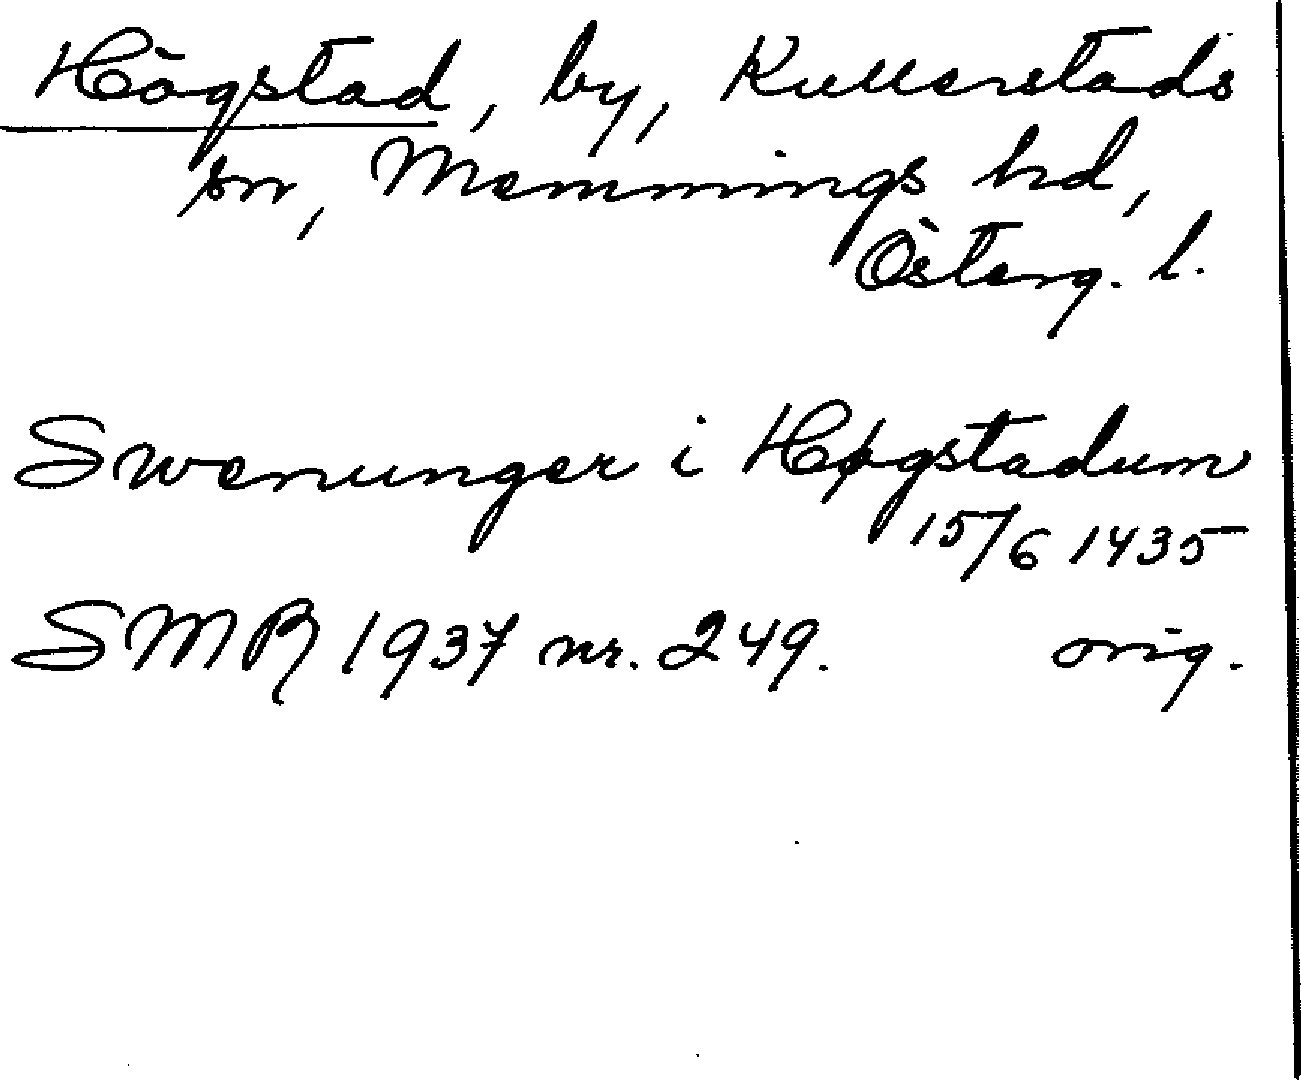 Högstad, by, Kullerstads
sn, Memmings hd,
Österg. l.
Swenunger i Høgstadum
15/6 1435
SMR 1937 nr. 249. orig.